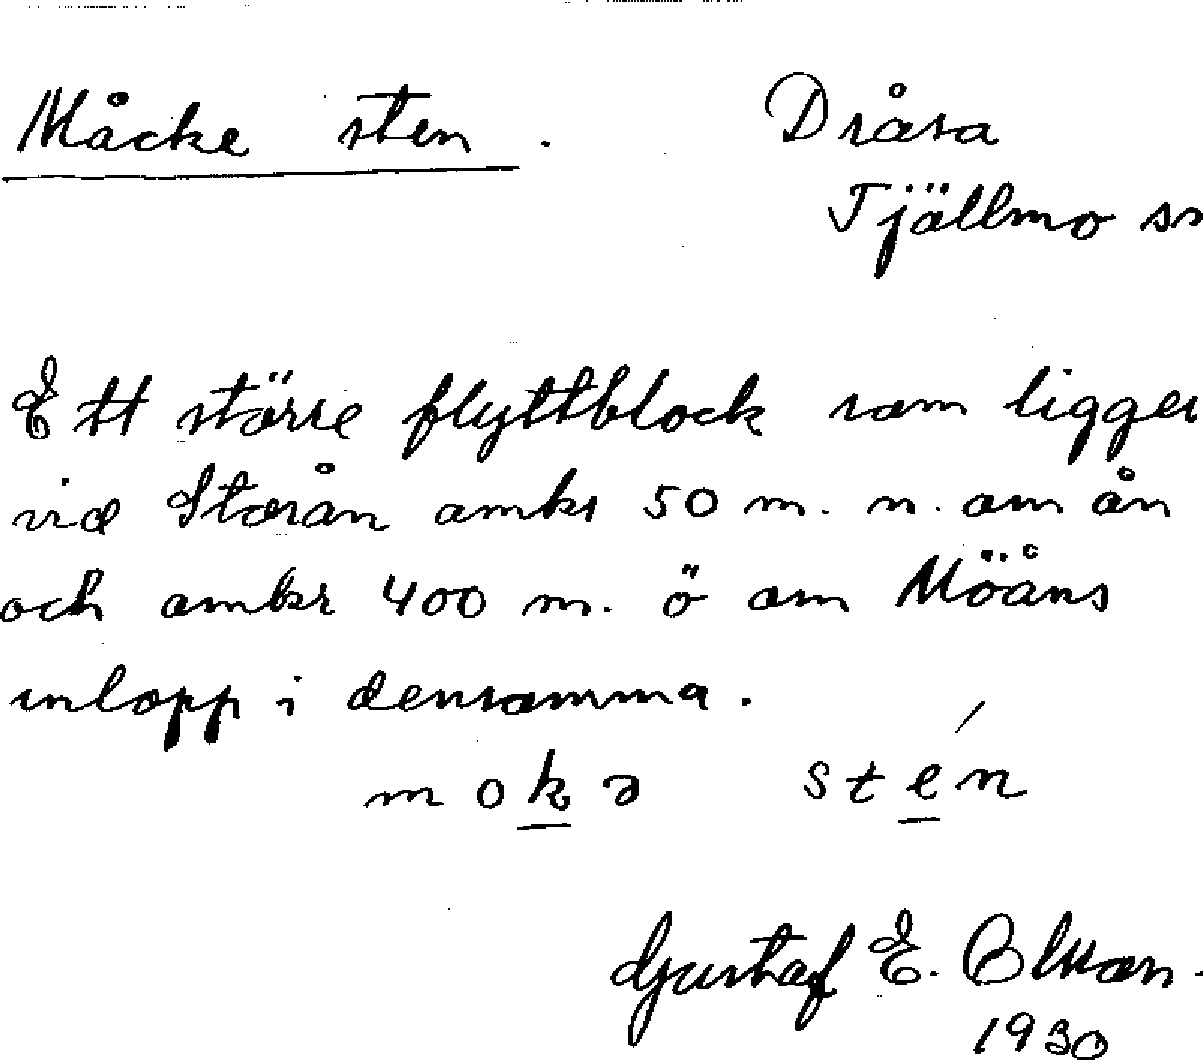 Måcke sten. Dråsa
Tjällmo sn
Ett större flyttblock som ligger
vid Storån omkr 50 m. n. om ån
och omkr 400 m. ö om Möåns
inlopp i densamma.
mokə stén
Gustaf E. Olsson.
1930